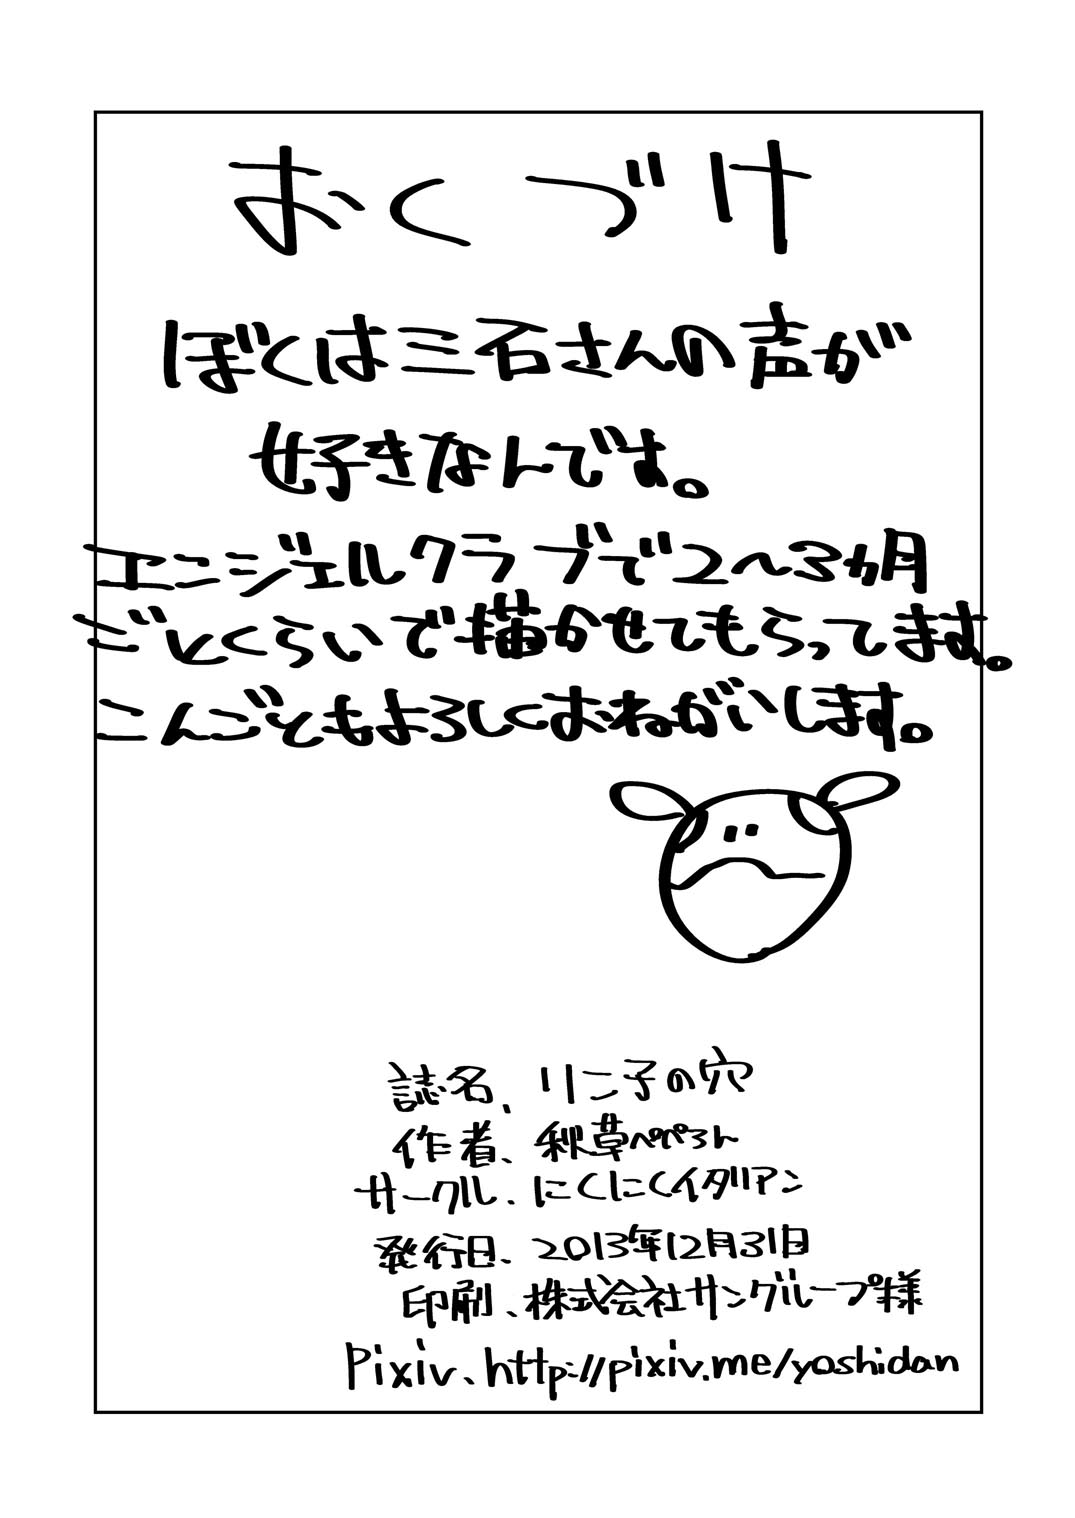 おくづけ
ぼくは三石さんの声が
好きなんです。
エンジェルクラブで2〜3ヵ月
ごとくらいで描かせてもらってます。
こんごともよろしくおねがいします。
誌名、リン子の穴
作者、秋草ぺぺろん
サークル、にくにくイタリアン
発行日、2013年12月31日
印刷、株式会社サングループ様
Pixiv、http://pixiv.me/yoshidan